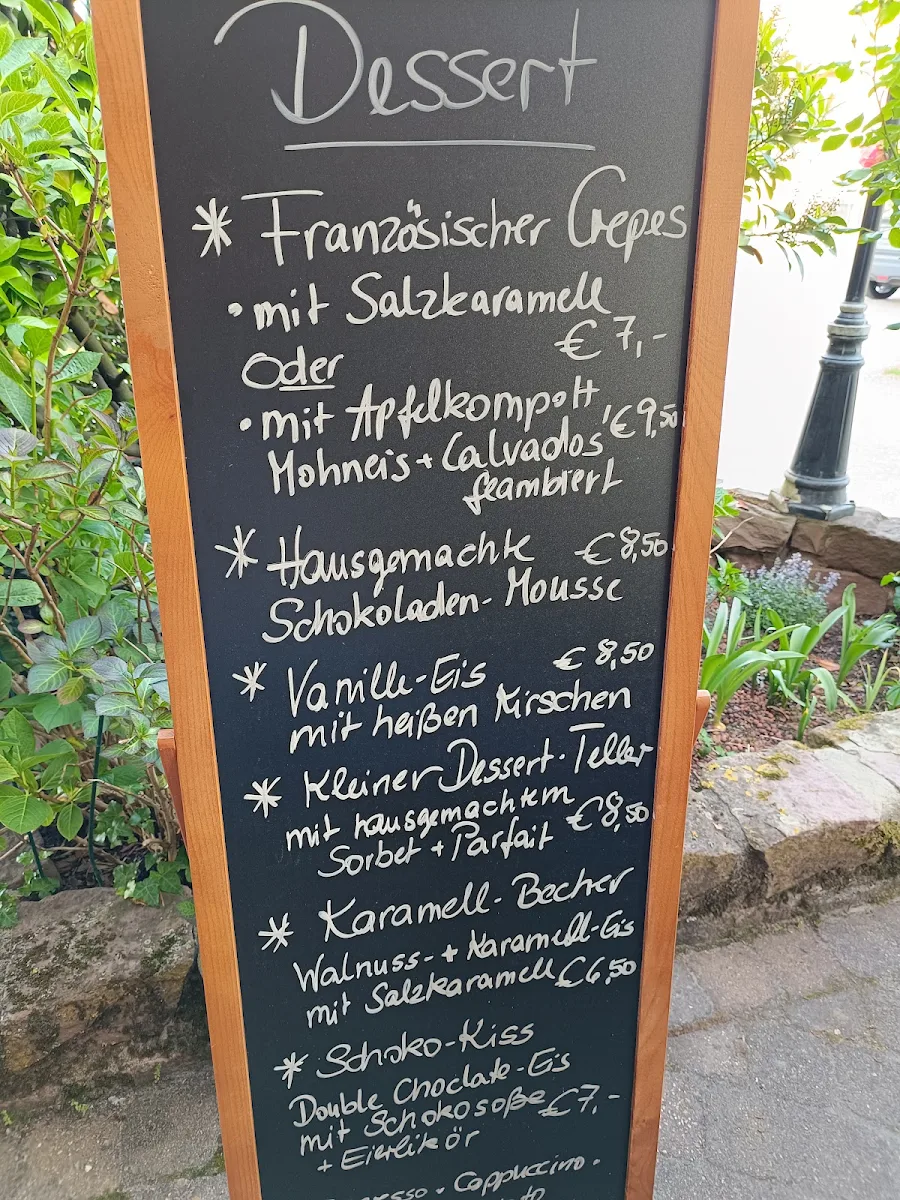 Dessert
* Französischer Crepes
• mit Salzkaramell
€ 7,-
Oder
• mit Apfelkompott,
€ 9,50
Mohneis + Calvados
flambiert
* Hausgemachte € 8,50
Schokoladen-Mousse
* Vanille-Eis € 8,50
mit heißen Kirschen
* Kleiner Dessert-Teller
mit hausgemachtem € 8,50
Sorbet + Parfait
* Karamell-Becher
Walnuss- + Karamell-Eis
mit Salzkaramell € 6,50
* Schoko-Kiss
Double Choclate-Eis
mit Schokosoße € 7,-
+ Eierlikör
Cappuccino •